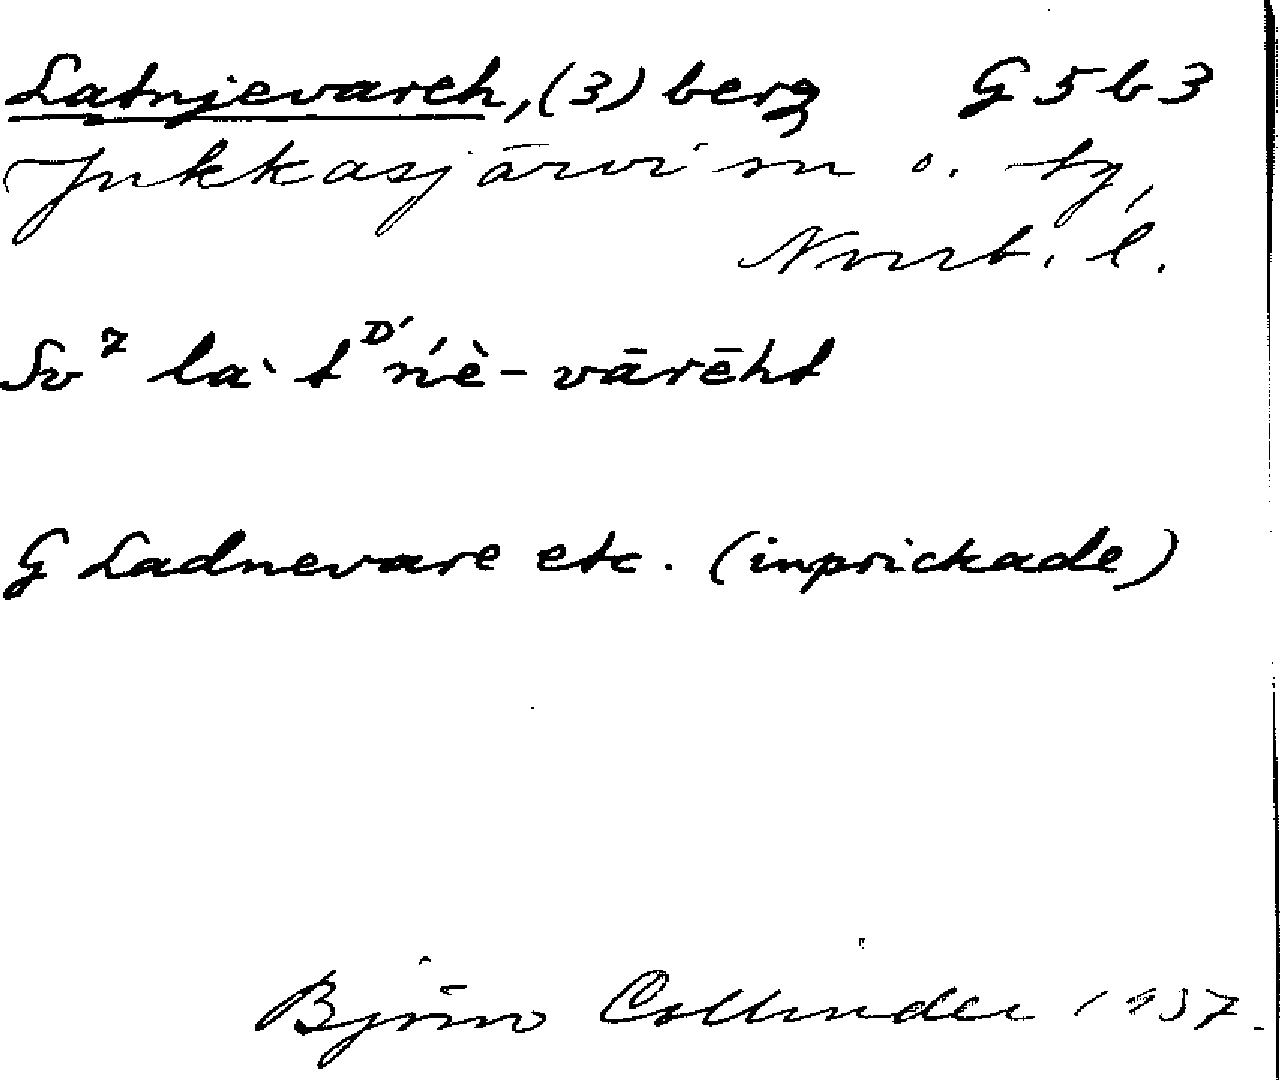 Latnjevareh, (3) berg G 5 b 3
Jukkasjärvi sn o. tg,
Norrb. l.
Sv⁷ la`t ᴰ´ńè-vārēht
G Ladnevare etc. (inprickade)
Björn Collinder 1937.